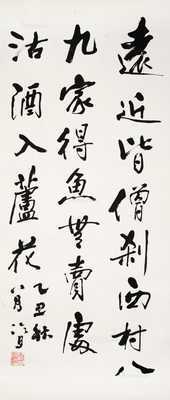 遠近皆僧刹西村八
九家得魚無賣處
沽酒入蘆花
乙丑秋
八月